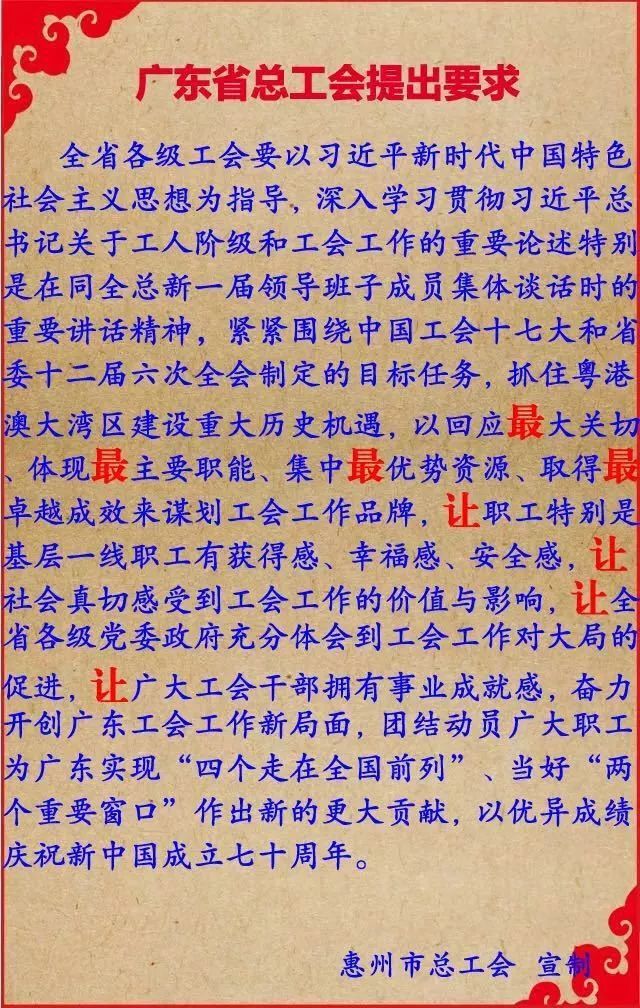 广东省总工会提出要求
全省各级工会要以习近平新时代中国特色
社会主义思想为指导，深入学习贯彻习近平总
书记关于工人阶级和工会工作的重要论述特别
是在同全总新一届领导班子成员集体谈话时的
重要讲话精神，紧紧围绕中国工会十七大和省
委十二届六次全会制定的目标任务，抓住粤港
澳大湾区建设重大历史机遇，以回应最大关切
、体现最主要职能、集中最优势资源、取得最
卓越成效来谋划工会工作品牌，让职工特别是
基层一线职工有获得感、幸福感、安全感，让
社会真切感受到工会工作的价值与影响，让全
省各级党委政府充分体会到工会工作对大局的
促进，让广大工会干部拥有事业成就感，奋力
开创广东工会工作新局面，团结动员广大职工
为广东实现“四个走在全国前列”、当好“两
个重要窗口”作出新的更大贡献，以优异成绩
庆祝新中国成立七十周年。
惠州市总工会 宣制